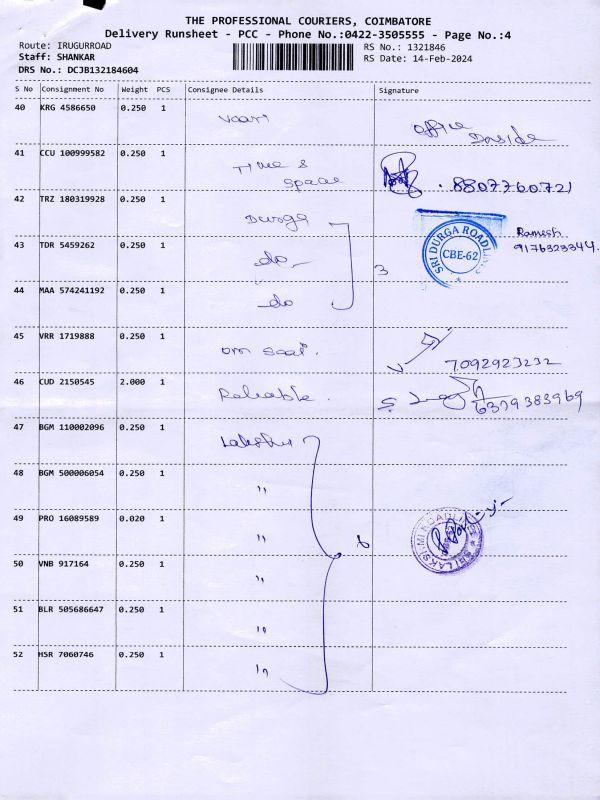 THE PROFESSIONAL COURIERS, COIMBATORE
Delivery Runsheet - PCC - Phone No.:0422-3505555 - Page No.:4
Route: IRUGURROAD RS No.: 1321846
Staff: SHANKAR RS Date: 14-Feb-2024
DRS No.: DCJB132184604
S No Consignment No Weight PCS Consignee Details Signature
40 KRG 4586650 0.250 1
Office
41 CCU 100999582 0.250 1
Time &
space 8807760721
42 TRZ 180319928 0.250 1
Durga
SRI DURGA ROADLINES
CBE-62
Ramesh
9176323344
43 TDR 5459262 0.250 1
do 3
44 MAA 574241192 0.250 1
do
45 VRR 1719888 0.250 1
om sai 7092923232
46 CUD 2150545 2.000 1
Reliable 6379383969
47 BGM 110002096 0.250 1
48 BGM 500006054 0.250 1
"
49 PRO 16089589 0.020 1
" 6
50 VNB 917164 0.250 1
"
51 BLR 505686647 0.250 1
"
52 HSR 7060746 0.250 1
"